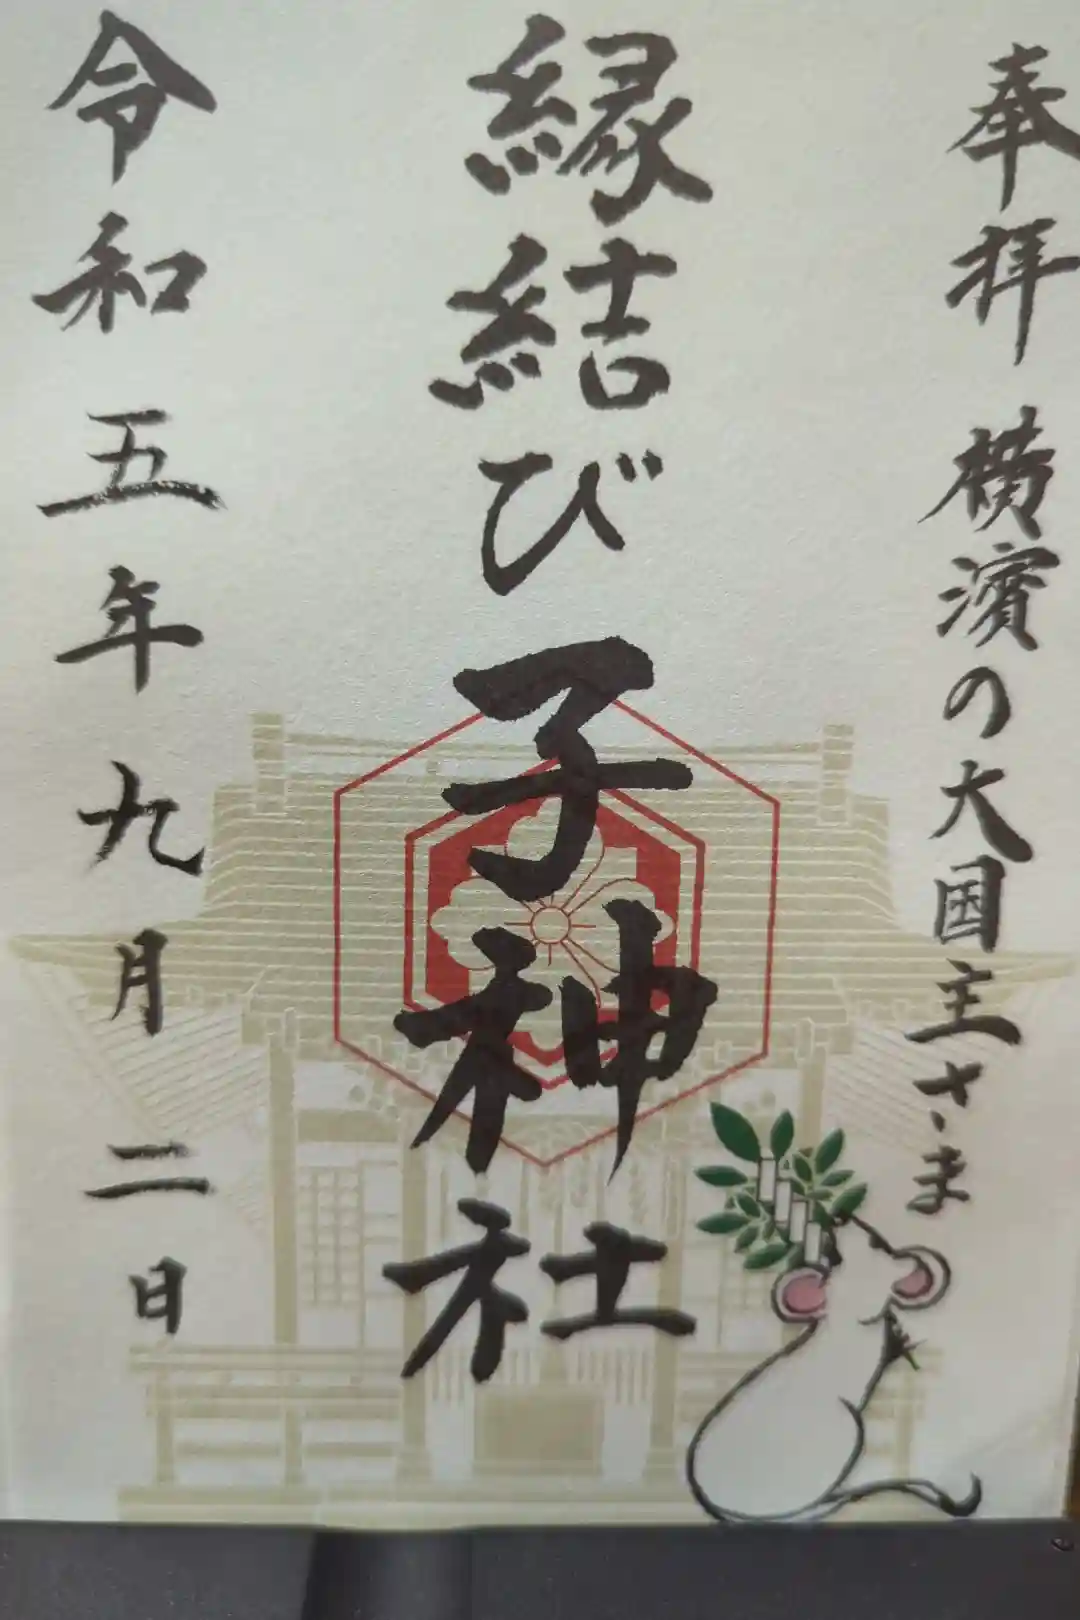 奉拝 横濱の大国主さま
縁結び 子神社
令和五年九月二日